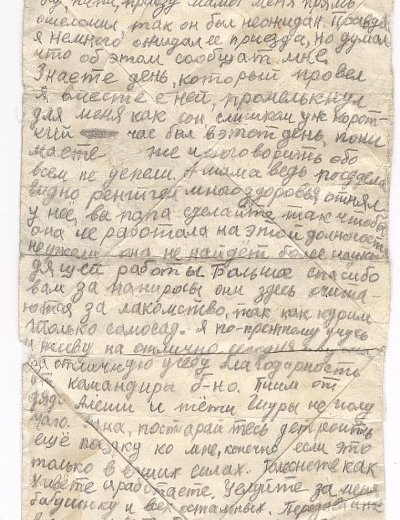 приезд мамы меня прямо
ошеломил так он был неожидан. Правда
я немного ожидал ее приезда, но думал
что об этом сообщат мне.
Знаете день, который провел
я вместе с ней, промелькнул
для меня как сон, слишком уж корот-
кий час был в этот день, пони
маете же и поговорить обо
всем не успели. А мама ведь поседела
видно рентген много здоровья отнял
у неё, вы папа сделайте так чтобы
она не работала на этой должности
неужели она не найдёт более
дящей работы. Большое спасибо
вам за папиросы они здесь счита-
ются за лакомство, так как курим
только самосад. Я по-прежнему учусь
и живу на отлично сегодня
за отличную учебу благодарность
от командира б-на. Писем от
дяди Алеши и тёти Шуры не полу
чало. постарайтесь
ещё поездку ко мне, конечно если это
только в ваших силах. как
живете и работаете. Целуйте за меня
бабушку и всех остальных. Передавайте